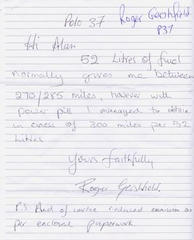 Polo 37
Roger Geishfield
P37
Hi Alan
52 Litres of fuel
normally gives me between
270/285 miles, however with
power pill I managed to obtain
in excess of 300 miles per 52
Litres
Yours faithfully
Roger Geishfield
P.S And of course reduced emissions as
per enclosed paperwork